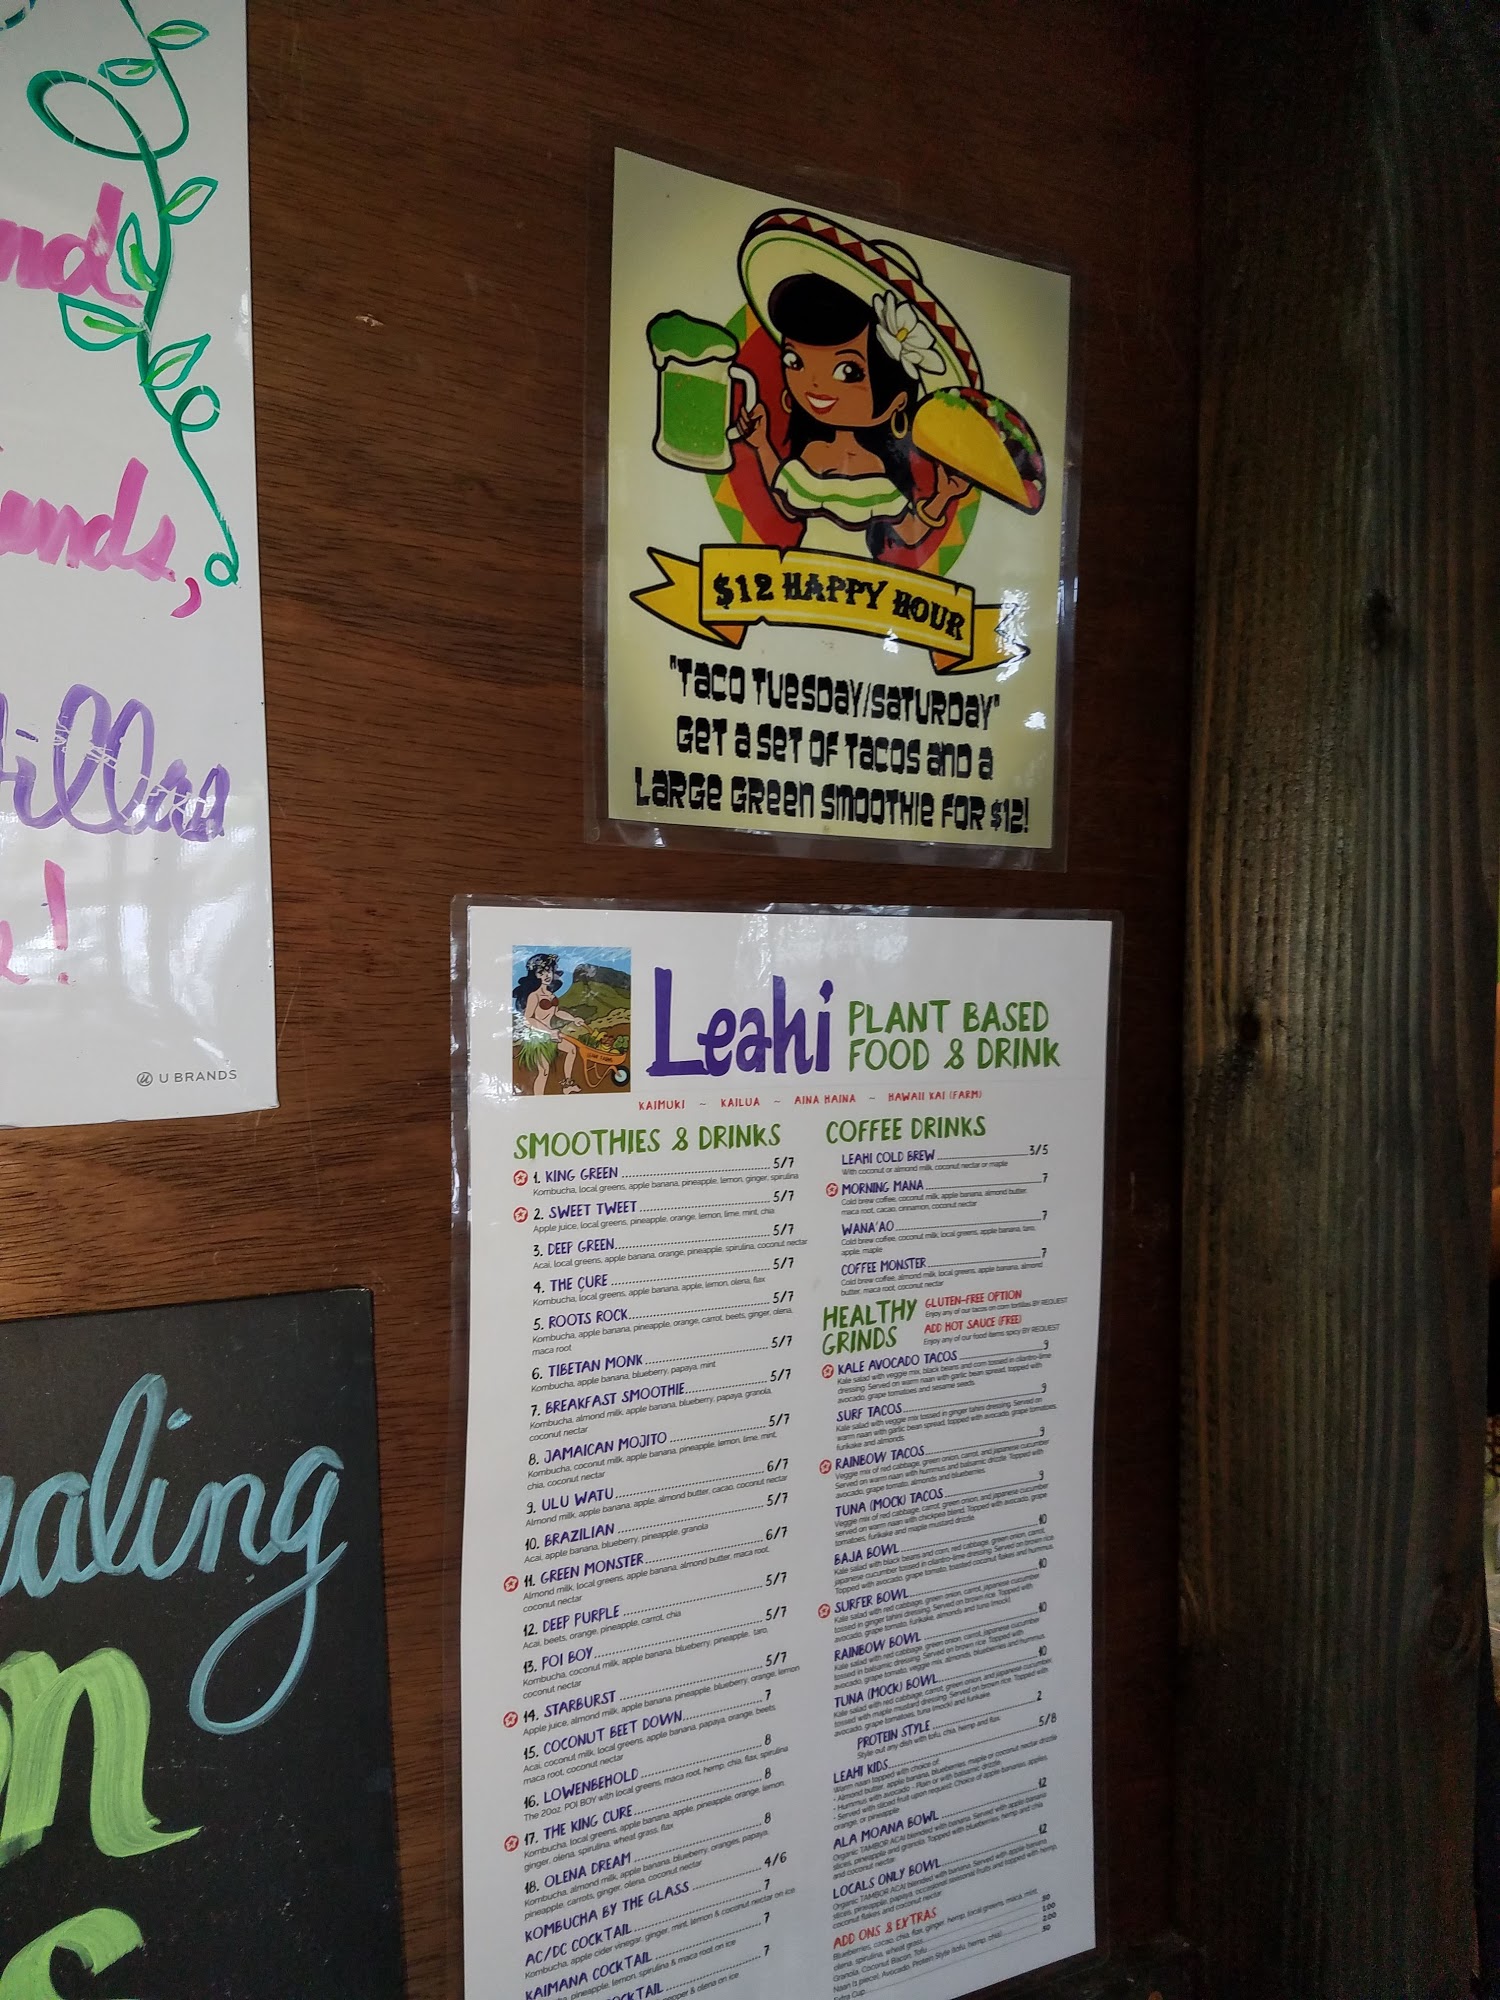 "TACO TUESDAY/SATURDAY"
$12 HAPPY HOUR
GET A SET OF TACOS AND A
LARGE GREEN SMOOTHIE FOR $12!
U BRANDS
Leahi
PLANT BASED
FOOD & DRINK
KAIMUKI ~ KAILUA ~ AINA HAINA ~ HAWAII KAI (FARM)
SMOOTHIES & DRINKS
1. KING GREEN 5/7
Kombucha, local greens, apple banana, pineapple, lemon, ginger, spirulina
2. SWEET TWEET 5/7
Apple juice, local greens, pineapple, orange, lemon, lime, mint, chia
3. DEEP GREEN 5/7
Acai, local greens, apple banana, orange, pineapple, spirulina, coconut nectar
4. THE CURE 5/7
Kombucha, local greens, apple banana, apple, lemon, olena, flax
5. ROOTS ROCK 5/7
Kombucha, apple banana, pineapple, orange, carrot, beets, ginger, olena,
maca root
6. TIBETAN MONK 5/7
Kombucha, apple banana, blueberry, papaya, mint
7. BREAKFAST SMOOTHIE 5/7
Kombucha, almond milk, apple banana, blueberry, papaya, granola,
coconut nectar
8. JAMAICAN MOJITO 5/7
Kombucha, coconut milk, apple banana, pineapple, lemon, lime, mint,
chia, coconut nectar
9. ULU WATU 6/7
Almond milk, apple banana, apple, almond butter, cacao, coconut nectar
10. BRAZILIAN 5/7
Acai, apple banana, blueberry, pineapple, granola
11. GREEN MONSTER 6/7
Almond milk, local greens, apple banana, almond butter, maca root,
coconut nectar
12. DEEP PURPLE 5/7
Acai, beets, orange, pineapple, carrot, chia
13. POI BOY 5/7
Kombucha, coconut milk, apple banana, blueberry, pineapple, taro,
coconut nectar
14. STARBURST 5/7
Apple juice, almond milk, apple banana, pineapple, blueberry, orange, lemon
15. COCONUT BEET DOWN 7
Acai, coconut milk, local greens, apple banana, papaya, orange, beets,
maca root, coconut nectar
16. LOWENBEHOLD 8
The 20oz. POI BOY with local greens, maca root, hemp, chia, flax, spirulina
17. THE KING CURE 8
Kombucha, local greens, apple banana, apple, pineapple, orange, lemon,
ginger, olena, spirulina, wheat grass, flax
18. OLENA DREAM 8
Kombucha, almond milk, apple banana, blueberry, oranges, papaya,
pineapple, carrots, ginger, olena, coconut nectar
KOMBUCHA BY THE GLASS 4/6
AC/DC COCKTAIL 7
Kombucha, apple cider vinegar, ginger, mint, lemon & coconut nectar on ice
KAIMANA COCKTAIL 7
pineapple, lemon, spirulina & maca root on ice
COCKTAIL 7
pepper & olena on ice
COFFEE DRINKS
LEAHI COLD BREW 3/5
With coconut or almond milk, coconut nectar or maple
MORNING MANA 7
Cold brew coffee, coconut milk, apple banana, almond butter,
maca root, cacao, cinnamon, coconut nectar
WANA'AO 7
Cold brew coffee, coconut milk, local greens, apple banana, taro,
apple, maple
COFFEE MONSTER 7
Cold brew coffee, almond milk, local greens, apple banana, almond
butter, maca root, coconut nectar
HEALTHY
GRINDS
GLUTEN-FREE OPTION
Enjoy any of our tacos on corn tortillas BY REQUEST
ADD HOT SAUCE (FREE)
Enjoy any of our food items spicy BY REQUEST
KALE AVOCADO TACOS 9
Kale salad with veggie mix, black beans and corn tossed in cilantro-lime
dressing. Served on warm naan with garlic bean spread, topped with
avocado, grape tomatoes and sesame seeds
SURF TACOS 9
Kale salad with veggie mix tossed in ginger tahini dressing. Served on
warm naan with garlic bean spread, topped with avocado, grape tomatoes,
furikake and almonds
RAINBOW TACOS 9
Veggie mix of red cabbage, green onion, carrot, and japanese cucumber
Served on warm naan with hummus and balsamic drizzle. Topped with
avocado, grape tomato, almonds and blueberries
TUNA (MOCK) TACOS 9
Veggie mix of red cabbage, carrot, green onion, and japanese cucumber
served on warm naan with chickpea blend. Topped with avocado, grape
tomatoes, furikake and maple mustard drizzle
BAJA BOWL 10
Kale salad with black beans and corn, red cabbage, green onion, carrot,
japanese cucumber tossed in cilantro-lime dressing. Served on brown rice
Topped with avocado, grape tomato, toasted coconut flakes and hummus
SURFER BOWL 10
Kale salad with red cabbage, green onion, carrot, japanese cucumber
tossed in ginger tahini dressing. Served on brown rice. Topped with
avocado, grape tomato, furikake, almonds and tuna (mock)
RAINBOW BOWL 10
Kale salad with red cabbage, green onion, carrot, japanese cucumber
tossed in balsamic dressing. Served on brown rice. Topped with
avocado, grape tomato, veggie mix, almonds, blueberries and hummus
TUNA (MOCK) BOWL 10
Kale salad with red cabbage, carrot, green onion, and japanese cucumber,
tossed with maple mustard dressing. Served on brown rice. Topped with
avocado, grape tomatoes, tuna (mock) and furikake
PROTEIN STYLE 2
Style out any dish with tofu, chia, hemp and flax
LEAHI KIDS 5/8
Warm naan topped with choice of:
- Almond butter, apple banana, blueberries, maple or coconut nectar drizzle
- Hummus with avocado - Plain or with balsamic drizzle
- Served with sliced fruit upon request: Choice of apple bananas, apples,
orange, or pineapple
ALA MOANA BOWL 12
Organic TAMBOR ACAI blended with banana. Served with apple banana
slices, pineapple and granola. Topped with blueberries, hemp and chia
and coconut nectar
LOCALS ONLY BOWL 12
Organic TAMBOR ACAI blended with banana. Served with apple banana
slices, pineapple, papaya, occasional seasonal fruits and topped with hemp,
coconut flakes and coconut nectar
ADD ONS & EXTRAS
Blueberries, cacao, chia, flax, ginger, hemp, local greens, maca, mint,
olena, spirulina, wheat grass .50
Granola, Coconut Bacon, Tofu 1.00
Naan (1 piece), Avocado, Protein Style (tofu, hemp, chia) 2.00
Extra Cup .50